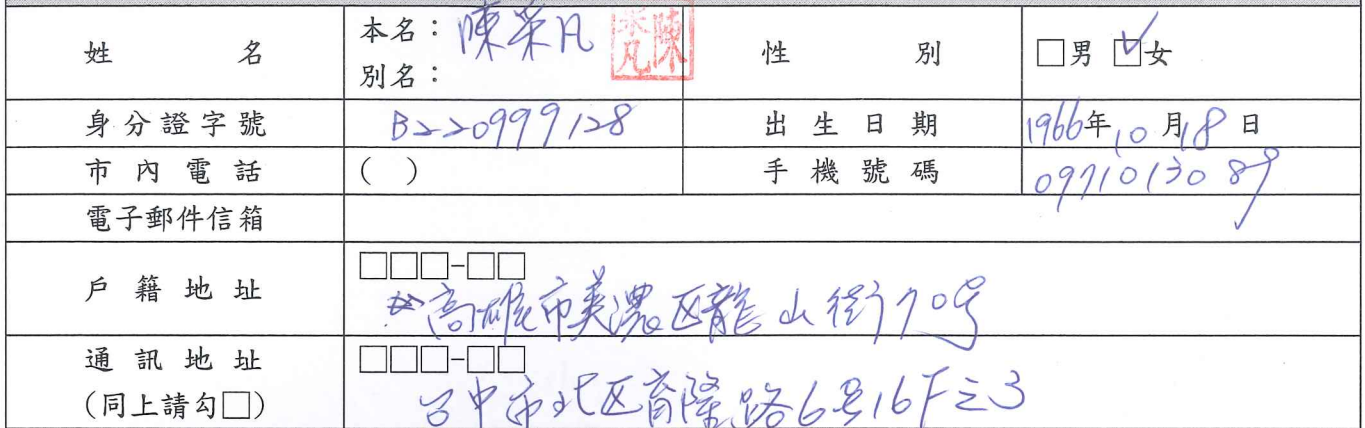 姓名 本名：陳榮凡 陳榮凡 性別 □男 ☑女
別名：
身分證字號 B220999128 出生日期 1966年10月18日
市內電話 ( ) 手機號碼 0971013089
電子郵件信箱
戶籍地址 □□□-□□
高雄市美濃区龍山街70号
通訊地址 □□□-□□
(同上請勾□) 台中市北区育隆路6号16F之3